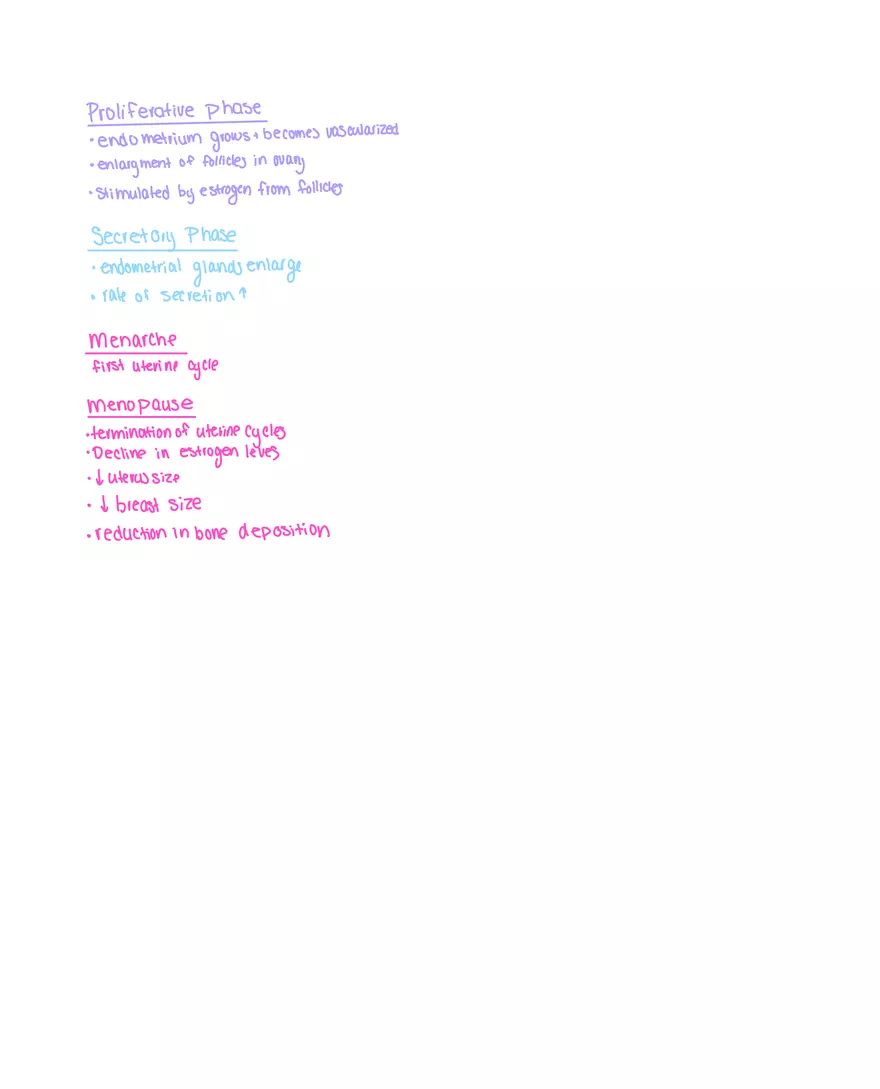 Proliferative phase
• endometrium grows + becomes vascularized
• enlargment of follicles in ovary
• stimulated by estrogen from follicles
Secretory Phase
• endometrial glands enlarge
• rate of secretion ↑
Menarche
first uterine cycle
menopause
• termination of uterine cycles
• Decline in estrogen leves
• ↓ uterus size
• ↓ breast size
• reduction in bone deposition